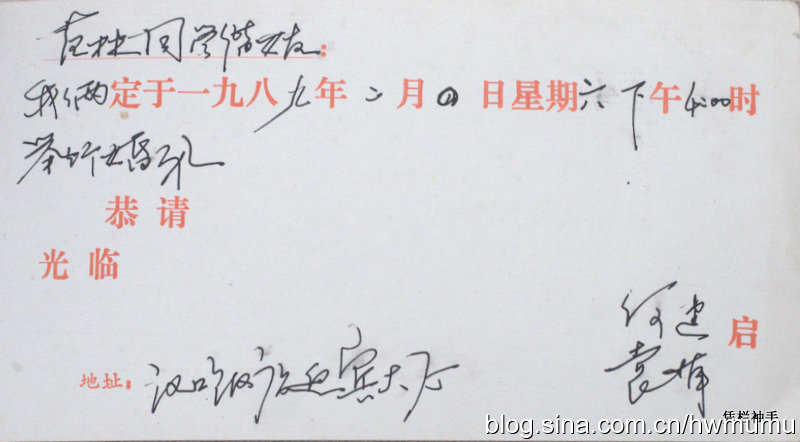 同学偕女友：
我俩定于一九八九年二月四日星期六下午4:00时
举行婚礼
恭请
光临
何建 启
袁
地址：汉口饭店迎宾大厅
凭栏袖手
blog.sina.com.cn/hwmumu